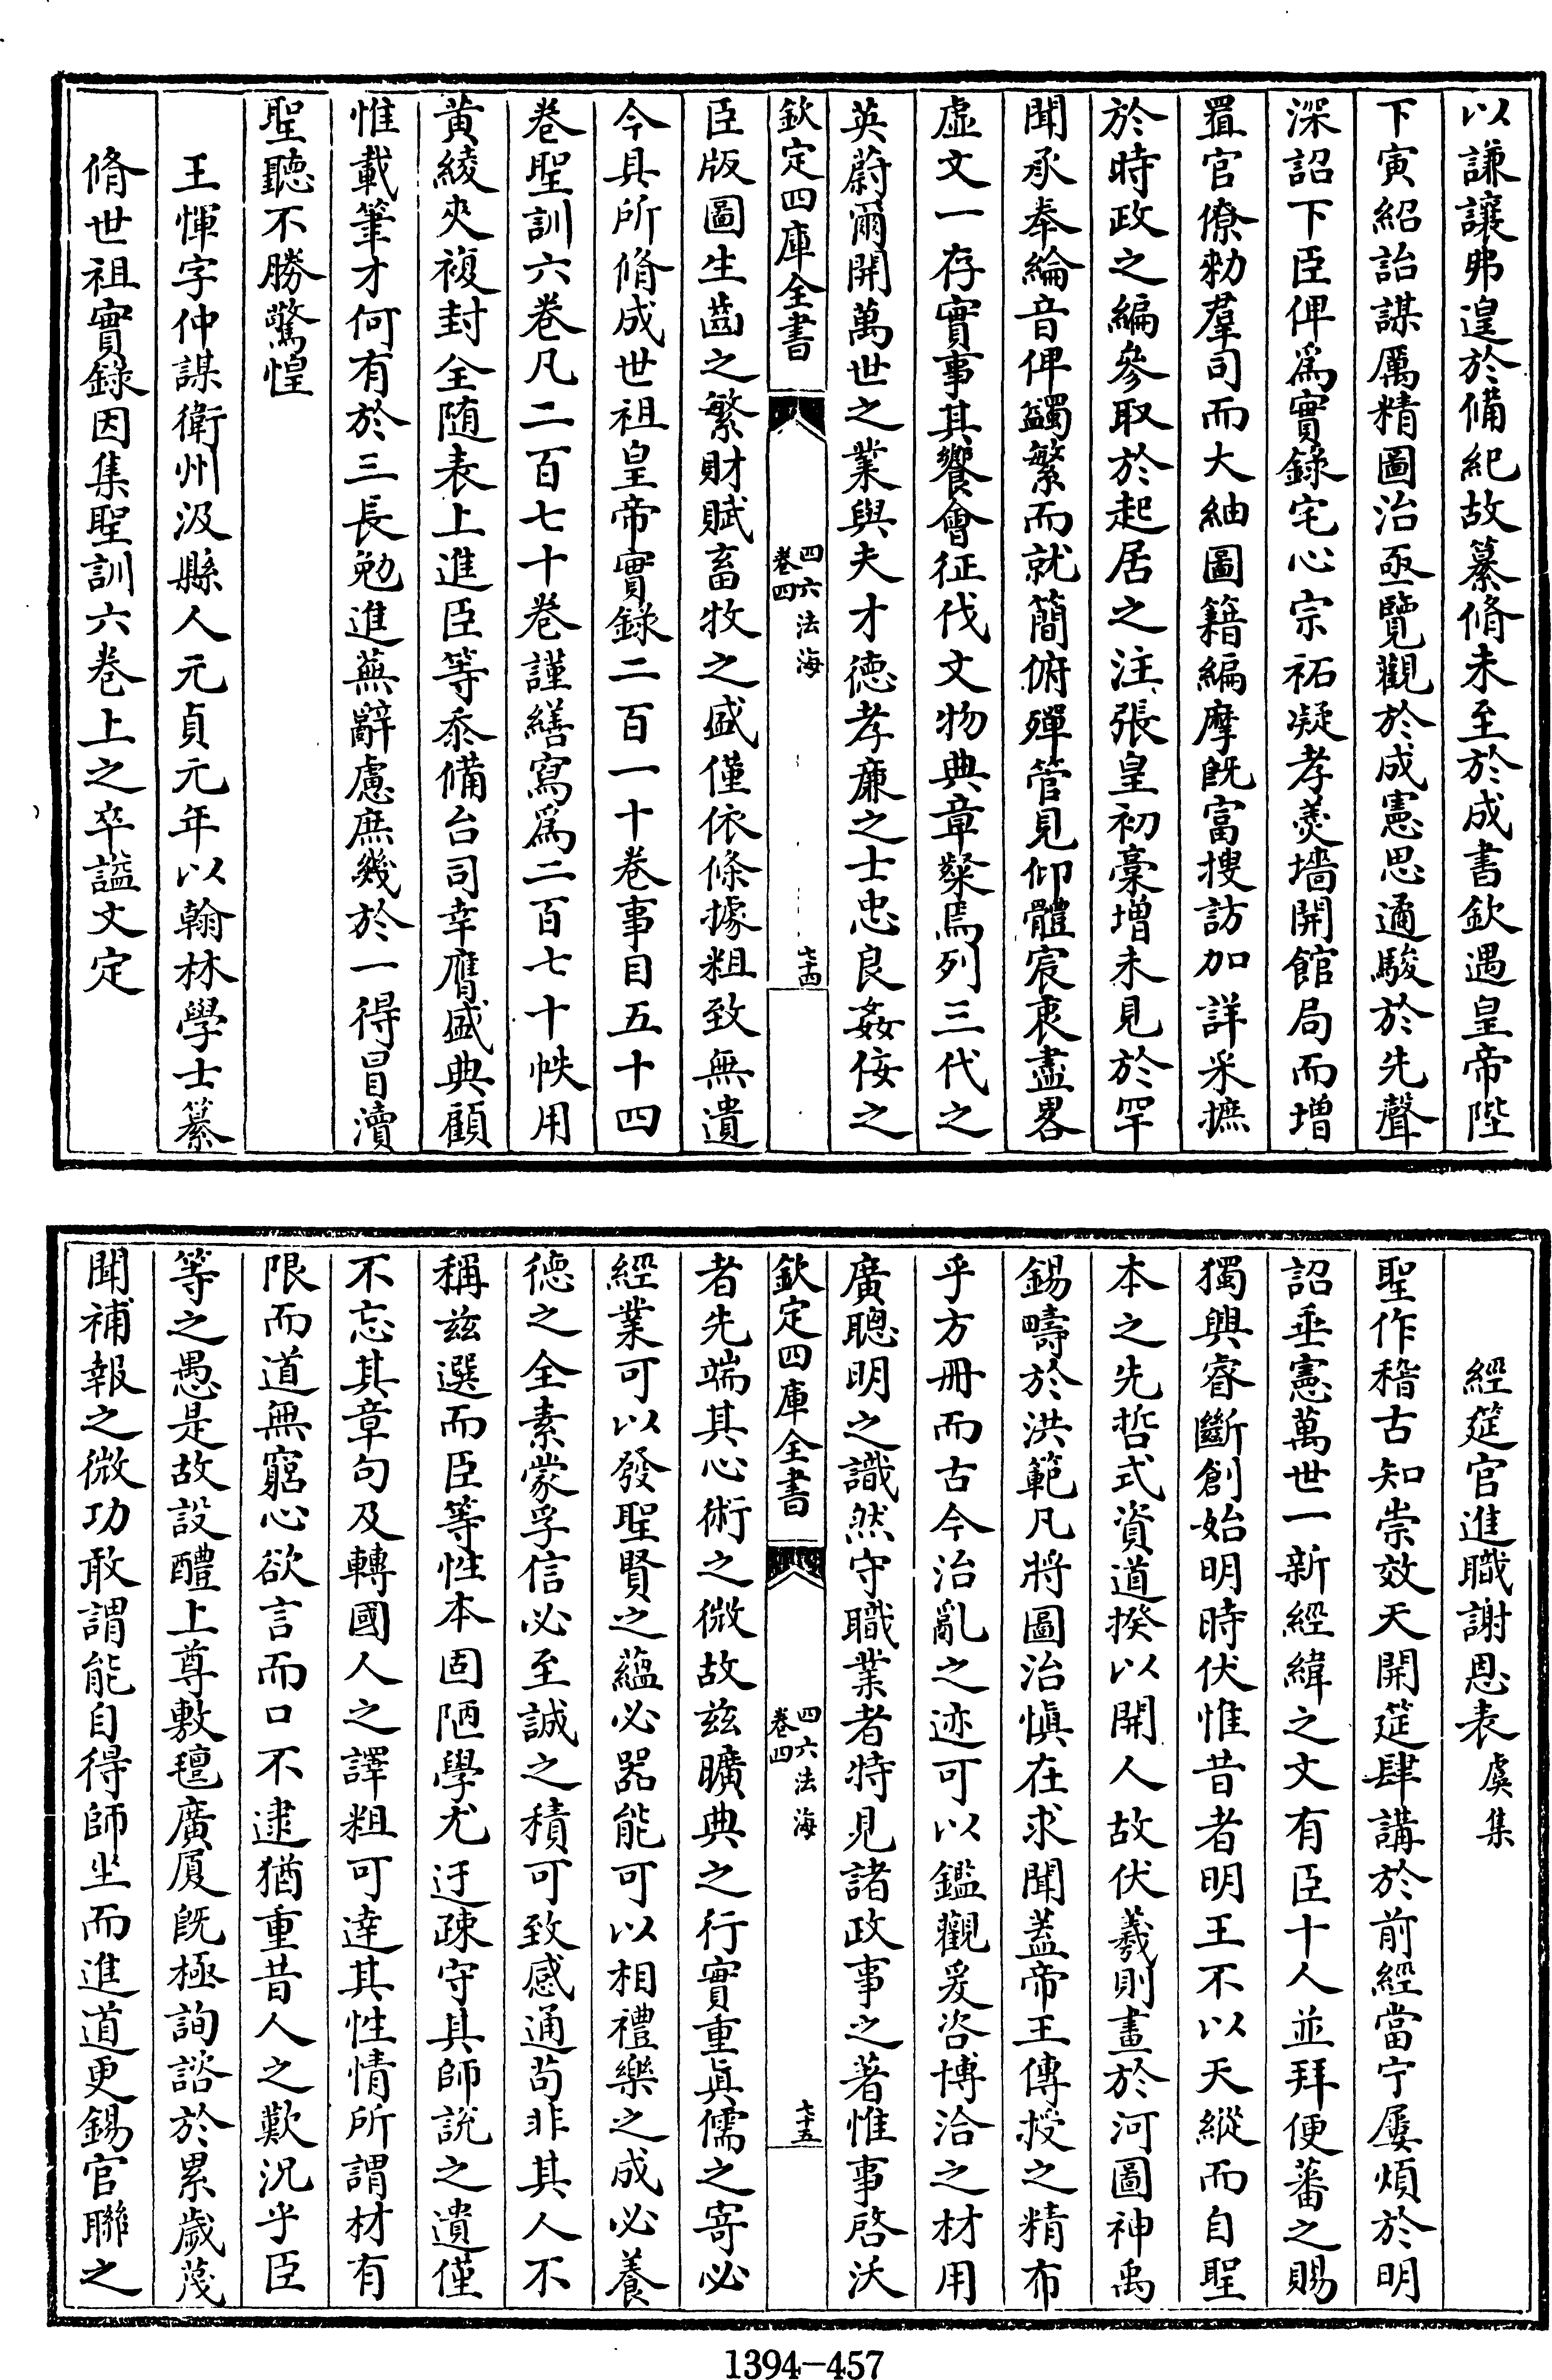 以謙讓弗遑於備紀故纂脩未至於成書欽遇皇帝陛
下寅紹詒謀厲精圖治亟覽觀於成憲思遹駿於先聲
深詔下臣俾爲實錄宅心宗祏凝孝羮墻開館局而增
置官僚勑羣司而大紬圖籍編摩旣富搜訪加詳采摭
於時政之編參取於起居之注張皇初稾增未見於罕
聞承奉綸音俾蠲繁而就簡俯殫管見仰體宸衷盡畧
虛文一存實事其饗會征伐文物典章粲焉列三代之
英蔚爾開萬世之業與夫才德孝廉之士忠良姦佞之
欽定四庫全書
四六法海
卷四
七十四
臣版圖生齒之繁財賦畜牧之盛僅依條據粗致無遺
今具所脩成世祖皇帝實錄二百一十卷事目五十四
卷聖訓六卷凡二百七十卷謹繕寫爲二百七十帙用
黃綾夾複封全随表上進臣等忝備台司幸膺盛典顧
惟載筆才何有於三長勉進蕪辭慮庶幾於一得冒瀆
聖聽不勝驚惶
王惲字仲謀衛州汲縣人元貞元年以翰林學士纂
脩世祖實錄因集聖訓六卷上之卒謚文定
經筵官進職謝恩表虞集
聖作稽古知崇效天開筵肆講於前經當宁屢煩於明
詔垂憲萬世一新經緯之文有臣十人並拜便蕃之賜
獨興睿斷創始明時伏惟昔者明王不以天縱而自聖
本之先哲式資道揆以開人故伏羲則畫於河圖神禹
錫疇於洪範凡將圖治愼在求聞蓋帝王傳授之精布
乎方冊而古今治亂之迹可以鑑觀爰咨博洽之材用
廣聰明之識然守職業者特見諸政事之著惟事啓沃
欽定四庫全書
四六法海
卷四
七十五
者先端其心術之微故兹曠典之行實重眞儒之寄必
經業可以發聖賢之蘊必器能可以相禮樂之成必養
德之全素蒙孚信必至誠之積可致感通苟非其人不
稱兹選而臣等性本固陋學尤迂疎守其師說之遺僅
不忘其章句及轉國人之譯粗可達其性情所謂材有
限而道無窮心欲言而口不逮猶重昔人之歎況乎臣
等之愚是故設醴上尊敷氊廣厦旣極詢諮於累歲蔑
聞補報之微功敢謂能自得師坐而進道更錫官聯之
1394-457